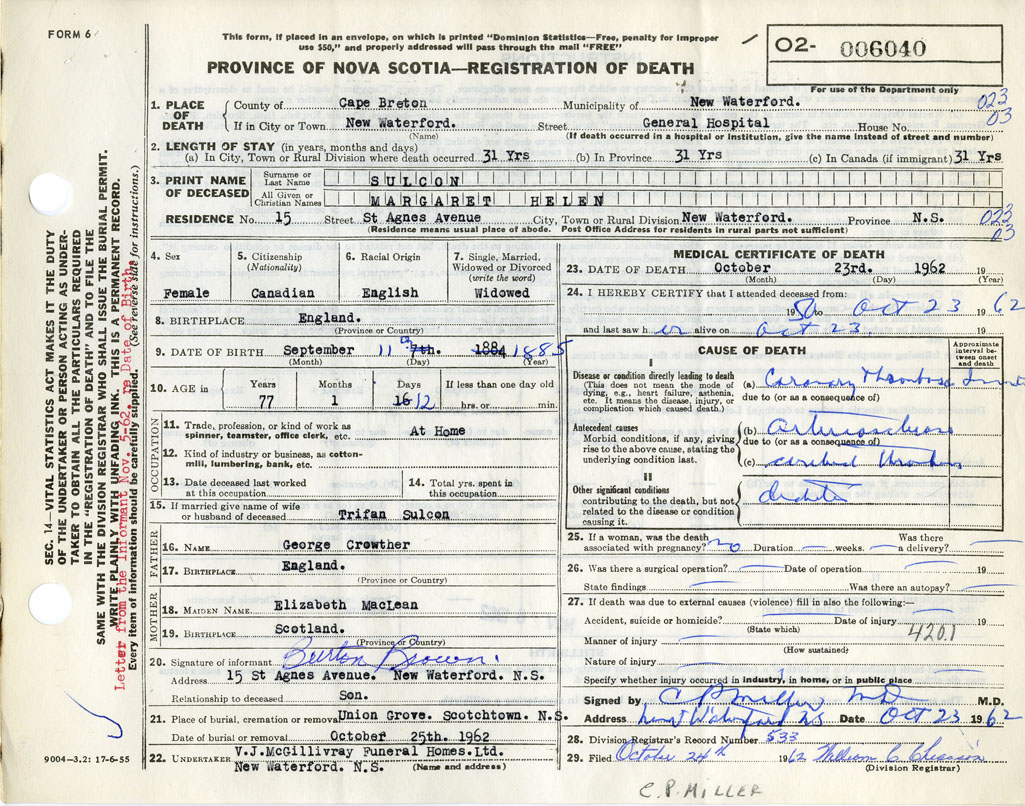 FORM 6
This form, if placed in an envelope, on which is printed "Dominion Statistics—Free, penalty for improper
use $50," and properly addressed will pass through the mail "FREE"
02- 006040
PROVINCE OF NOVA SCOTIA—REGISTRATION OF DEATH
For use of the Department only
1. PLACE OF DEATH
County of Cape Breton Municipality of New Waterford. 023
03
If in City or Town New Waterford. Street General Hospital House No.
(Name) (If death occurred in a hospital or institution, give the name instead of street and number)
2. LENGTH OF STAY (in years, months and days)
(a) In City, Town or Rural Division where death occurred 31 Yrs (b) In Province 31 Yrs (c) In Canada (if immigrant) 31 Yrs
3. PRINT NAME OF DECEASED
Surname or Last Name SULCON
All Given or Christian Names MARGARET HELEN
RESIDENCE No. 15 Street St Agnes Avenue City, Town or Rural Division New Waterford. Province N.S. 023
03
(Residence means usual place of abode. Post Office Address for residents in rural parts not sufficient)
4. Sex
Female
5. Citizenship
(Nationality)
Canadian
6. Racial Origin
English
7. Single, Married,
Widowed or Divorced
(write the word)
Widowed
8. BIRTHPLACE England.
(Province or Country)
9. DATE OF BIRTH September 11th 7th. 1884 1885
(Month) (Day) (Year)
10. AGE in
Years Months Days If less than one day old
77 1 16 12 hrs. or min.
OCCUPATION
11. Trade, profession, or kind of work as
spinner, teamster, office clerk, etc. At Home
12. Kind of industry or business, as cotton-
mill, lumbering, bank, etc.
13. Date deceased last worked
at this occupation
14. Total yrs. spent in
this occupation
15. If married give name of wife
or husband of deceased Trifan Sulcon
FATHER
16. NAME George Crowther
17. BIRTHPLACE England.
(Province or Country)
MOTHER
18. MAIDEN NAME Elizabeth MacLean
19. BIRTHPLACE Scotland.
(Province or Country)
20. Signature of informant Burton Brown.
Address 15 St Agnes Avenue. New Waterford. N.S.
Relationship to deceased Son.
21. Place of burial, cremation or removal Union Grove. Scotchtown. N.S.
Date of burial or removal October 25th. 1962
22. UNDERTAKER V.J.McGillivray Funeral Homes.Ltd.
New Waterford. N.S. (Name and address)
MEDICAL CERTIFICATE OF DEATH
23. DATE OF DEATH October 23rd. 1962 19
(Month) (Day) (Year)
24. I HEREBY CERTIFY that I attended deceased from:
19 50 to Oct 23 1962
and last saw h er alive on Oct 23. 19
CAUSE OF DEATH
Approximate
interval be-
tween onset
and death
I
Disease or condition directly leading to death
(This does not mean the mode of
dying, e.g., heart failure, asthenia,
etc. It means the disease, injury, or
complication which caused death.)
(a) Coronary Thrombosis
due to (or as a consequence of)
Antecedent causes
Morbid conditions, if any, giving
rise to the above cause, stating the
underlying condition last.
(b) Arteriosclerosis
due to (or as a consequence of)
(c) cerebral thrombosis
II
Other significant conditions
contributing to the death, but not
related to the disease or condition
causing it.
diabetes
25. If a woman, was the death
associated with pregnancy? no Duration weeks. Was there
a delivery?
26. Was there a surgical operation? Date of operation 19
State findings Was there an autopsy?
27. If death was due to external causes (violence) fill in also the following:—
Accident, suicide or homicide? Date of injury 19
(State which)
420.1
Manner of injury
(How sustained)
Nature of injury
Specify whether injury occurred in industry, in home, or in public place
Signed by C P Miller MD M.D.
Address New Waterford NS Date Oct 23 1962
28. Division Registrar's Record Number 533
29. Filed October 24th 1962 William C
(Division Registrar)
C.P. MILLER
SEC. 14—VITAL STATISTICS ACT MAKES IT THE DUTY
OF THE UNDERTAKER OR PERSON ACTING AS UNDER-
TAKER TO OBTAIN ALL THE PARTICULARS REQUIRED
IN THE "REGISTRATION OF DEATH" AND TO FILE THE
SAME WITH THE DIVISION REGISTRAR WHO SHALL ISSUE THE BURIAL PERMIT.
WRITE PLAINLY WITH UNFADING INK. THIS IS A PERMANENT RECORD.
Letter from the Informant Nov. 5-62. re Date of Birth
Every item of information should be carefully supplied. (See reverse side for instructions.)
9004—3.2: 17-6-55